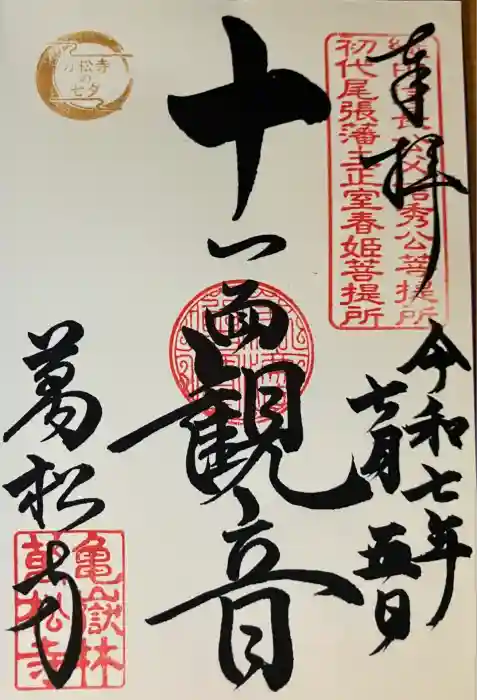 奉拝
織田信長公父君信秀公菩提所
初代尾張藩主正室春姫菩提所
令和七年
六月五日
十一面観音
万松寺
の
七夕
萬松寺
亀嶽林
萬松寺